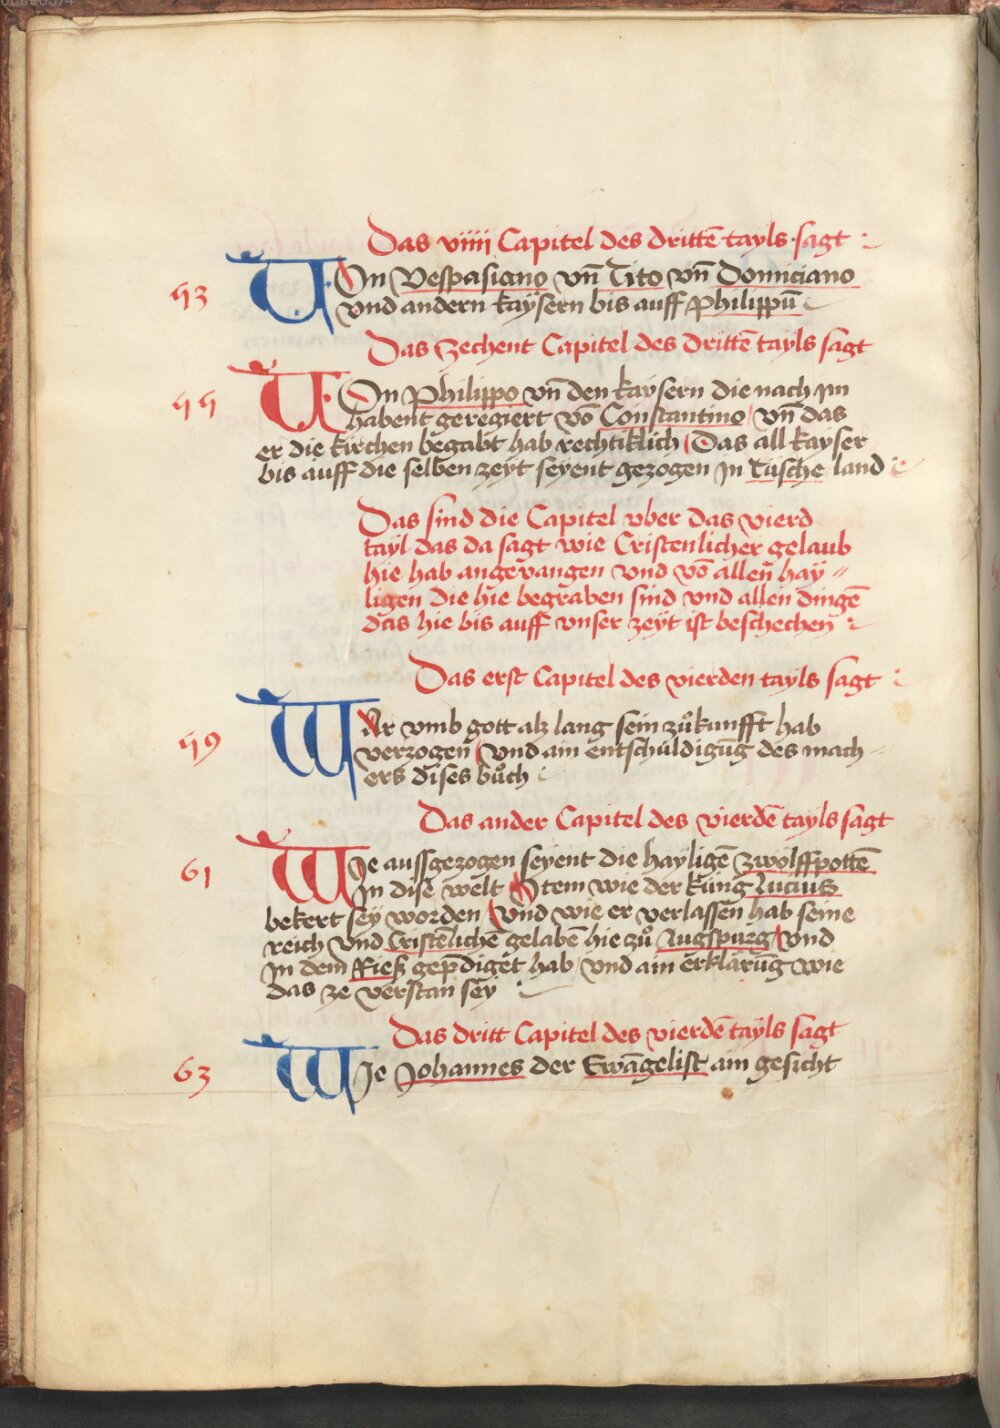 Das viiii Capitel des drittē tayls sagt
53
VOn Vespasiano vn̄ Tito vn̄ Domiciano
vnd andern kaÿsern bis auff Philippū
Das zechent Capitel des drittē tayls sagt
55
VOn Philippo vn̄ den kaysern die nach jm
habent geregiert vō Constantino / vn̄ das
er die kirchen begabt hab rechtiklich / Das all kayser
bis auff die selben zeyt seyent gezogen jn Tüsche land
Das sind die Capitel vber das vierd
tayl das da sagt wie Cristenlicher gelaub
hie hab angevangen vnd vō allen̄ haÿ〃
ligen die hie begraben sind vnd allen dingē
das hie bis auff vnser zeÿt ist beschechen̄
Das erst Capitel des vierden tayls sagt
59
WAr vmb gott alz lang sein zůkunfft hab
verzogen̄ / vnd ain entschuldigūg des mach〃
ers dises bůch
Das ander Capitel des vierdē tayls sagt
61
WIe aussgezogen seyent die hayligē zwolffpottē
jn disē welt Item wie der küng Lucius
bekert seÿ worden / vnd wie er verlassen hab seine
reich vnd Cristēlichē gelabē hie zů Augspurg / vnd
jn dem Rieß gep̄diget hab / vnd ain erklärūg wie
das ze verstan sey
Das dritt Capitel des vierdē taÿls sagt
63
WIe Johannes der Ewāgelist ain gesicht